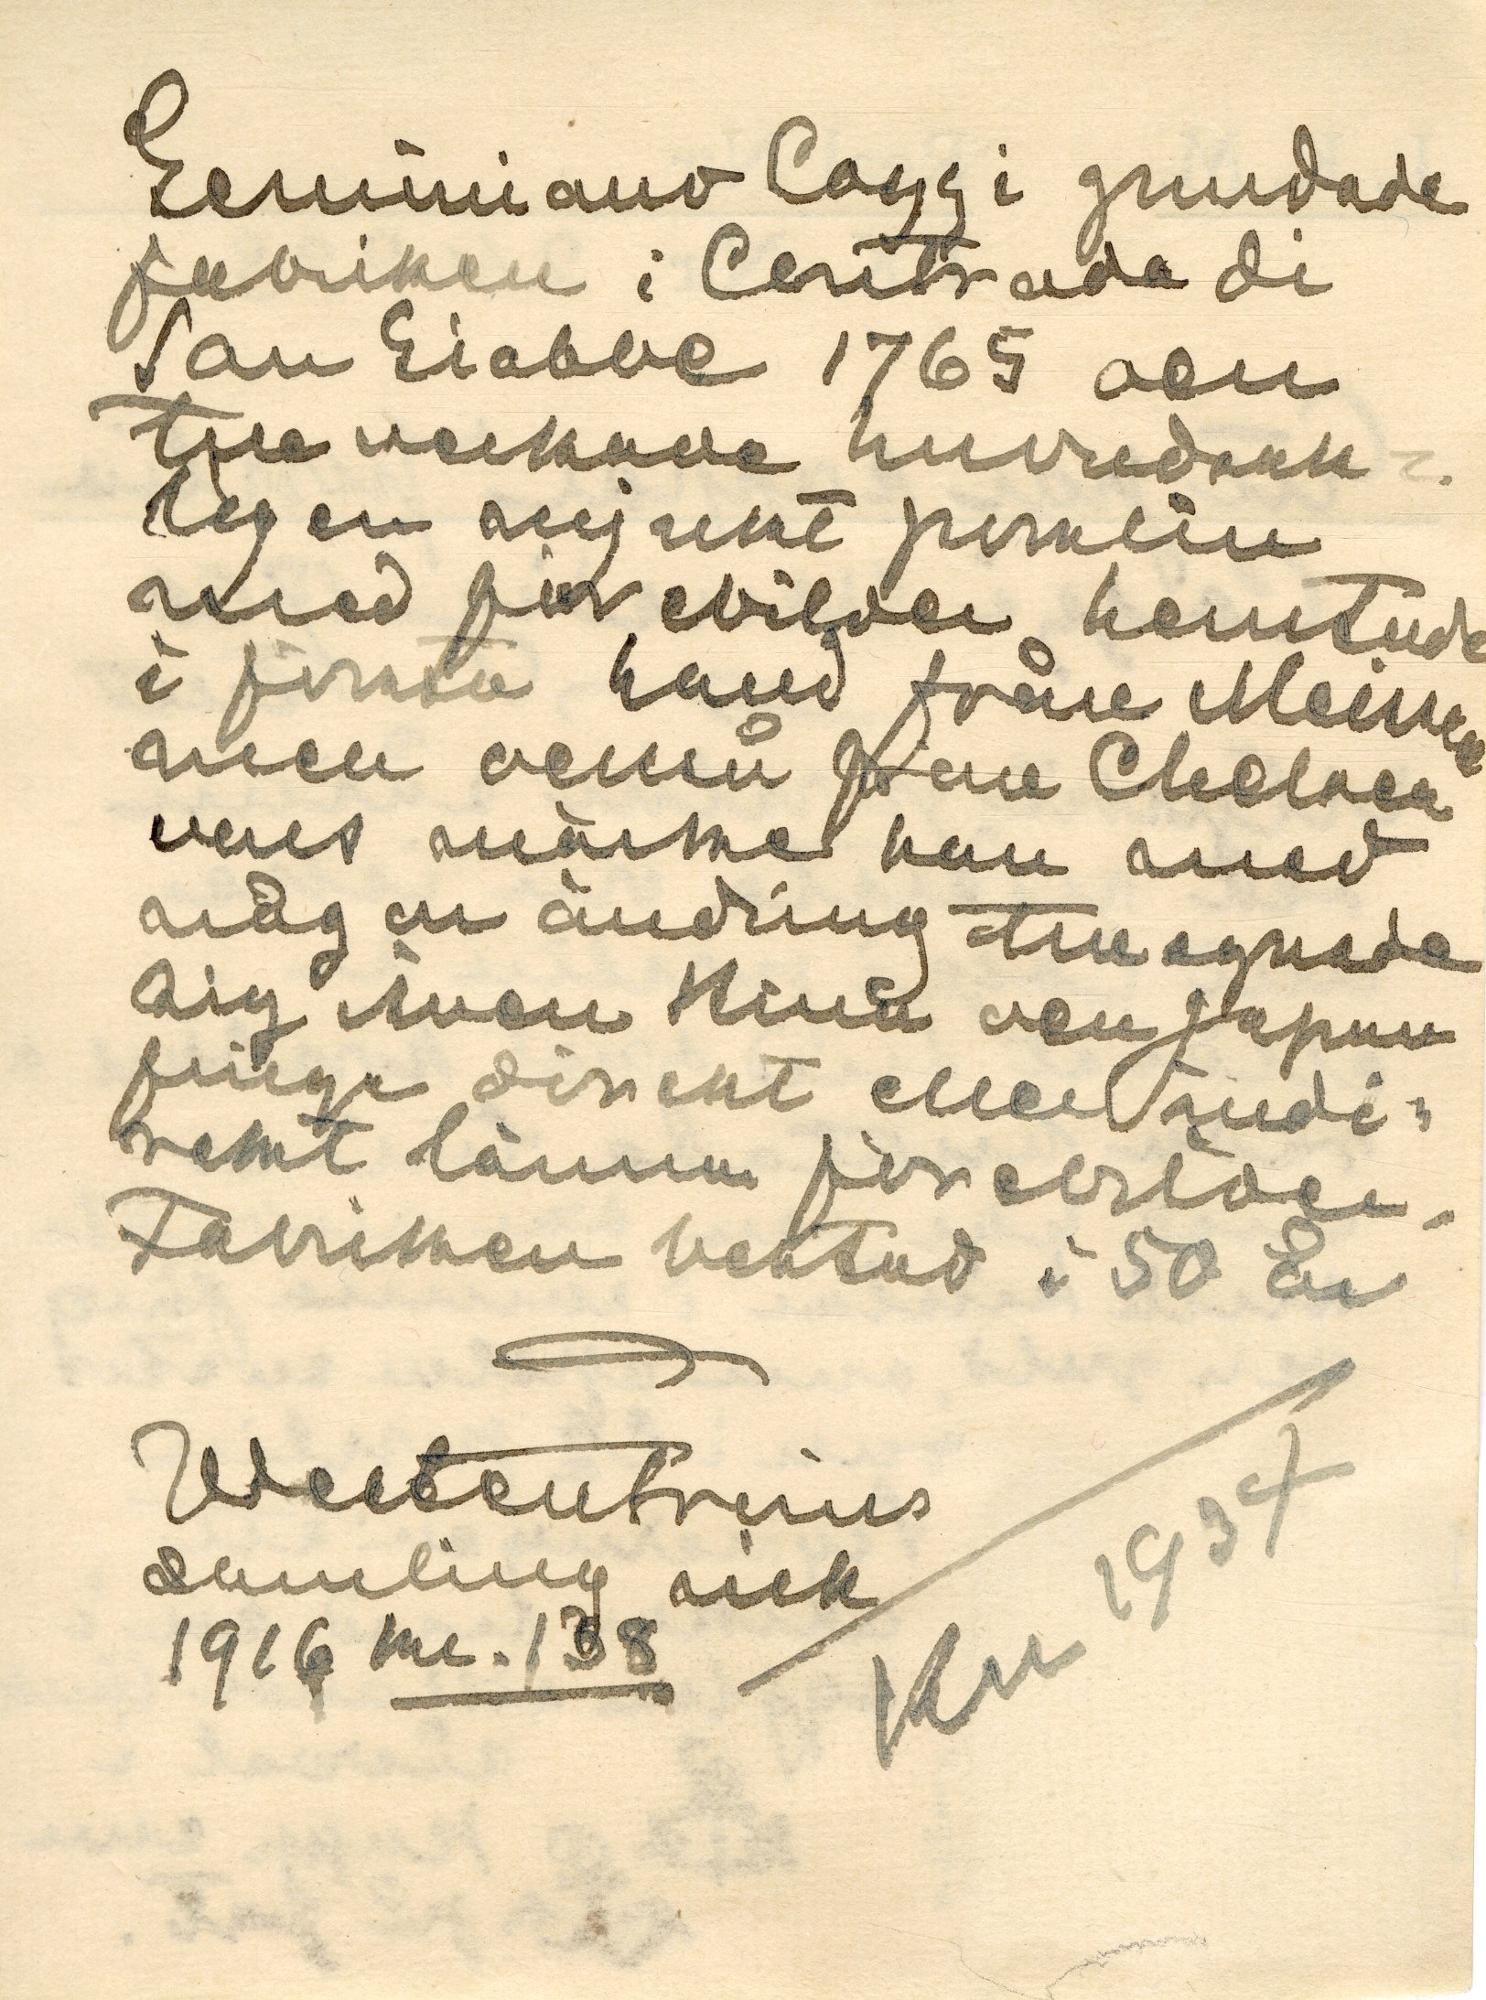 Geminiano Cozzi grundade
fabriken i Contrada di
San Giobbe 1765 och
tillverkade huvudsak-
ligen mjukt porslin
med förebilder hemtade
i första hand från Meissen
men också från Chelsea
vars märke han med
någon ändring tillegnade
sig även Kina och Japan
finga direkt eller indi-
rekt lämna förebilder.
Fabriken bestod i 50 år
samling inek
1916 kr. 138
1937